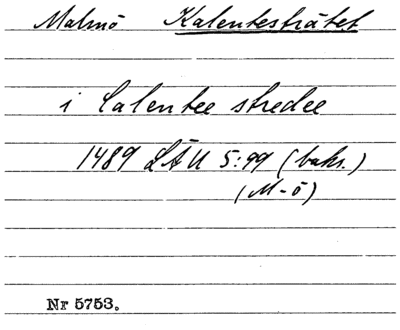 Malmö Kalentesträtet
i Calentee stredee
1489 LÄU 5:99 (baks.)
(M-ö)
Nr 5753.